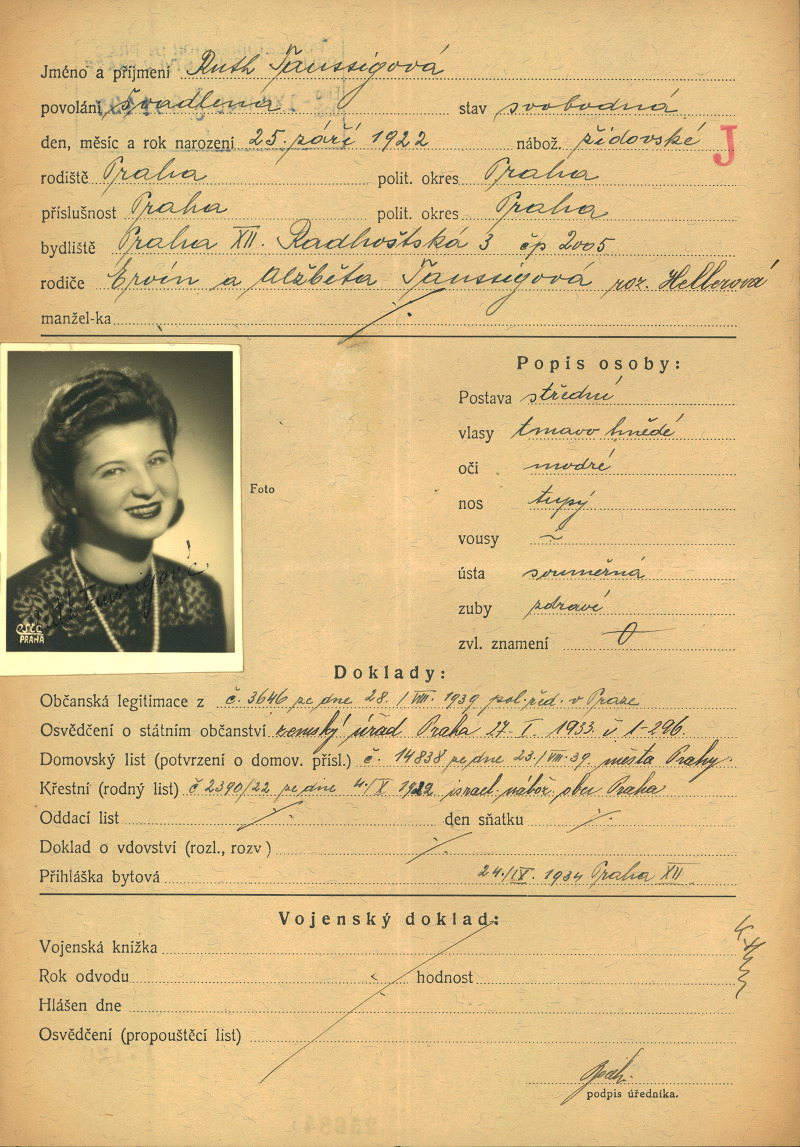 Jméno a příjmení Ruth Taussigová
povolání švadlena stav svobodná
den, měsíc a rok narození 25. září 1922 nábož. židovské J
rodiště Praha polit. okres Praha
příslušnost Praha polit. okres Praha
bydliště Praha XII. Radhoštská 3 čp 2005
rodiče Ervín a Alžběta Taussigová roz. Hellerová
manžel-ka ·/.
Popis osoby:
Postava střední
vlasy tmavo hnědé
oči modré
Foto
nos tupý
vousy –
ústa souměrná
zuby zdravé
zvl. znamení 0
Ruth Taussigová
PRAHA
Doklady:
Občanská legitimace z č. 3646 ze dne 28. /VIII. 1939 pol. řed. v Praze
Osvědčení o státním občanství zemský úřad Praha 27. I. 1933. č 1-296.
Domovský list (potvrzení o domov. přísl.) č. 14838 ze dne 23./VIII.39. města Prahy.
Křestní (rodný list) č 2390/22 ze dne 4./X 1922 israel. nábož. obec Praha
Oddací list ·/. den sňatku ·/.
Doklad o vdovství (rozl., rozv) ·/.
Přihláška bytová 24./IX. 1934 Praha XII
Vojenský doklad:
Vojenská knížka
Rok odvodu hodnost
Hlášen dne
Osvědčení (propouštěcí list)
podpis úředníka.